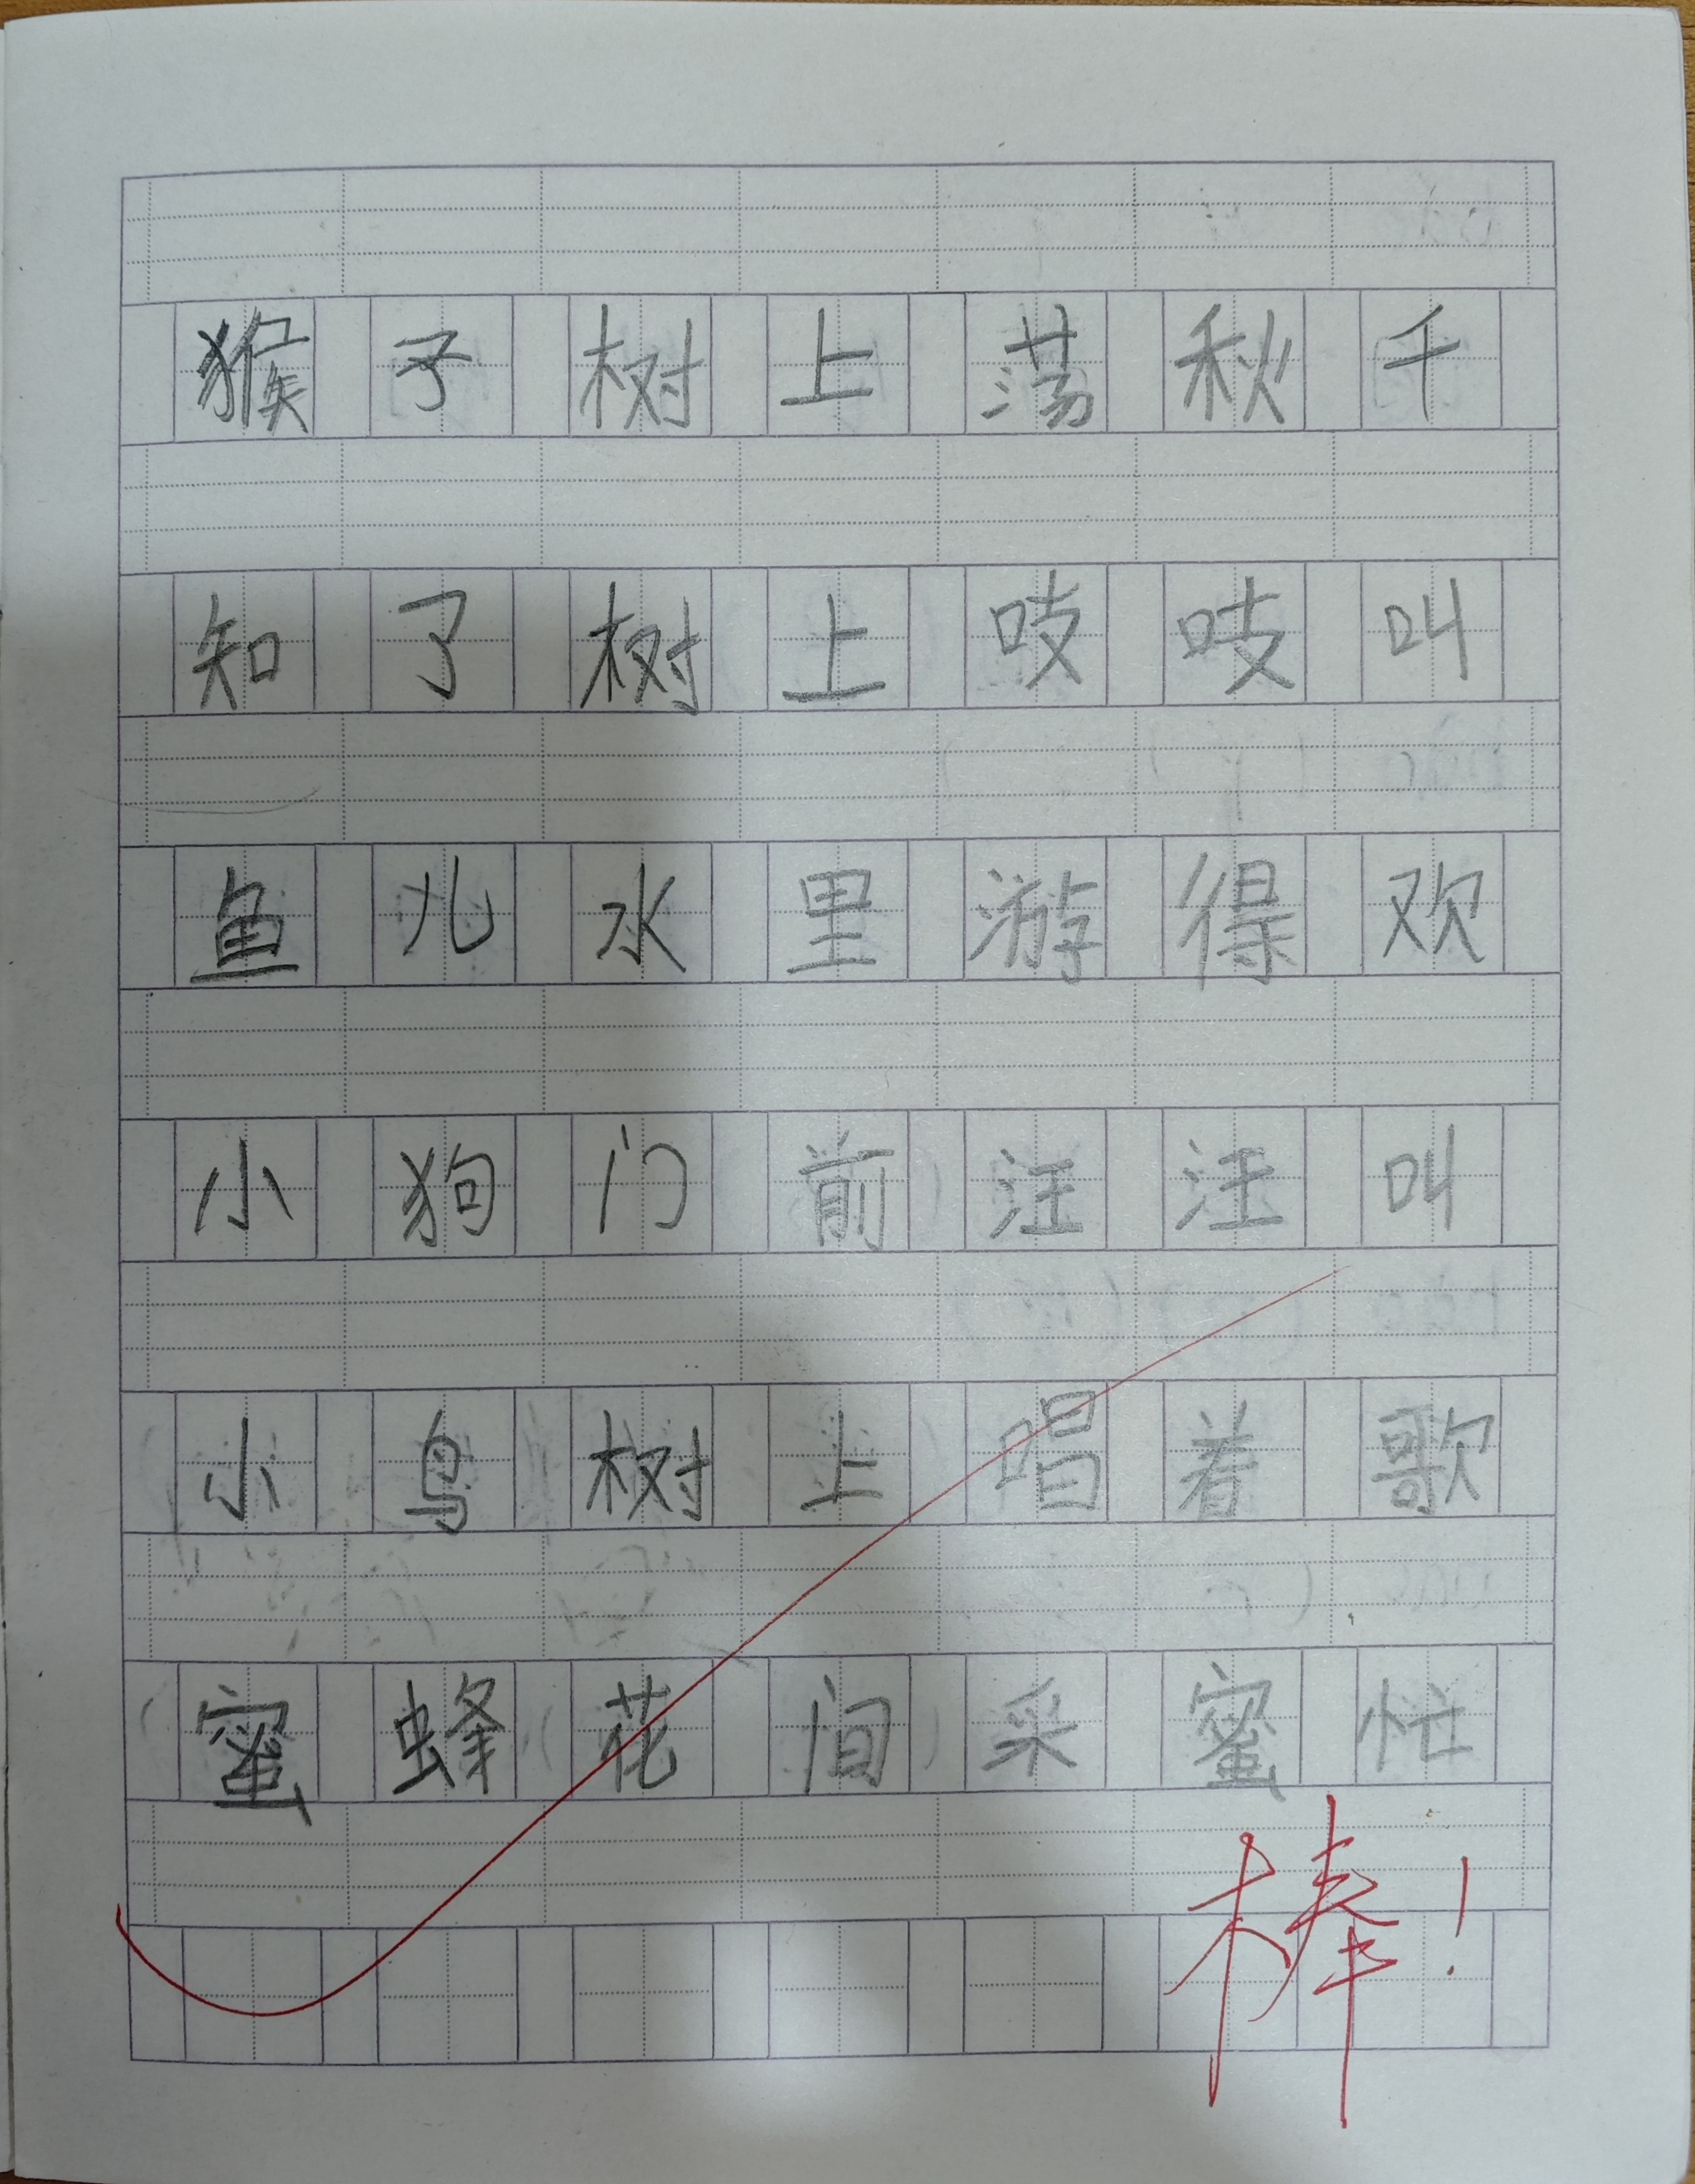 猴子树上荡秋千
知了树上吱吱叫
鱼儿水里游得欢
小狗门前汪汪叫
小鸟树上唱着歌
蜜蜂花间采蜜忙
棒!